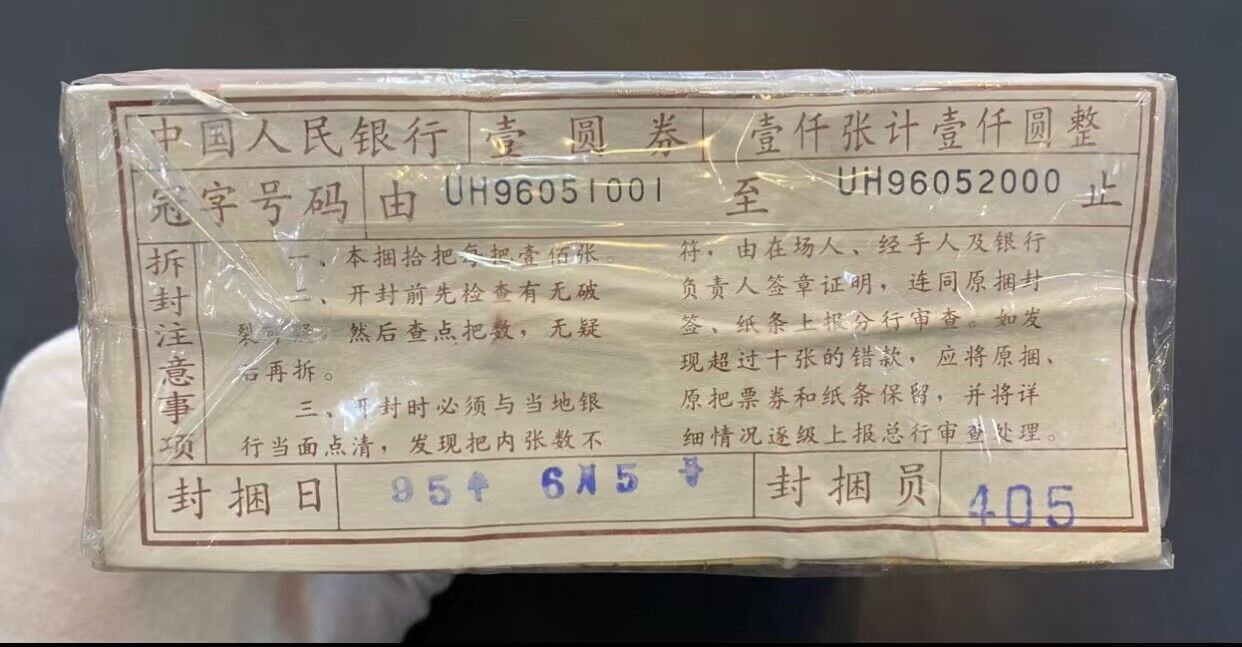 中国人民银行 壹圆券 壹仟张计壹仟圆整
冠字号码 由 UH96051001 至 UH96052000 止
拆封注意事项
一、本捆拾把每把壹佰张。
二、开封前先检查有无破
裂 然后查点把数，无疑
后再拆。
三、开封时必须与当地银
行当面点清，发现把内张数不
符，由在场人、经手人及银行
负责人签章证明，连同原捆封
签、纸条上报分行审查。如发
现超过十张的错款，应将原捆、
原把票券和纸条保留，并将详
细情况逐级上报总行审查处理。
封捆日 95年 6月5 封捆员 405